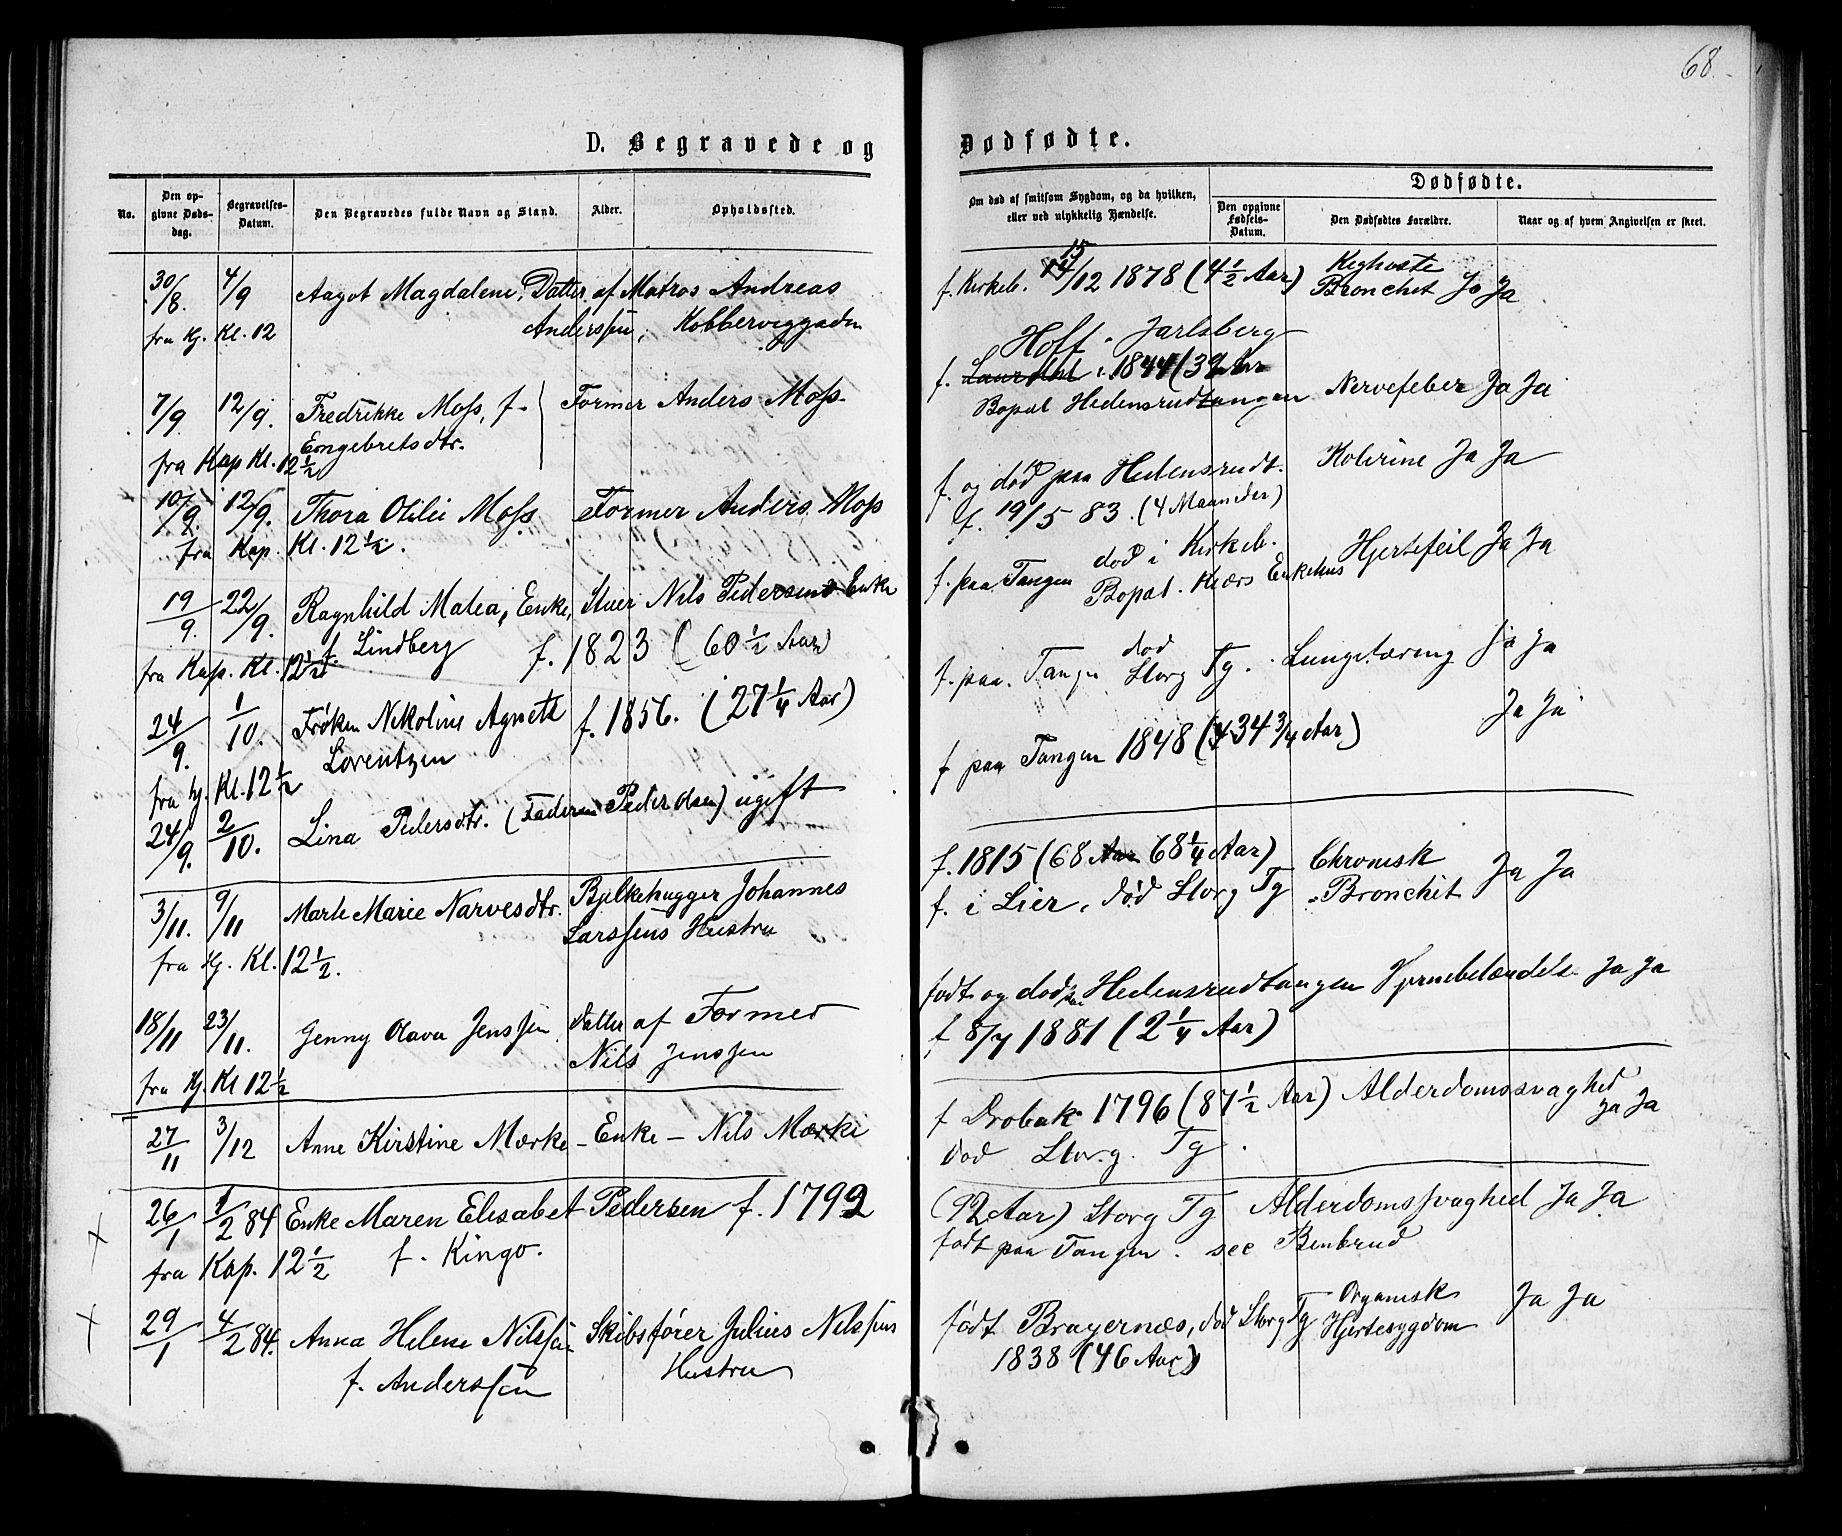 68.
D. Begravede og Dødfødte.
No.
Den opgivne Dødsdag.
Begravelses-Datum.
Den Begravedes fulde Navn og Stand.
Alder.
Opholdssted.
Om død af smitsom Sygdom, og da hvilken, eller ved ulykkelig Hændelse.
Dødfødte.
Den opgivne Fødsels-Datum.
Den Dødfødtes Forældre.
Naar og af hvem Angivelsen er skeet.
30/8. 4/9 Aagot Magdalene, Datter af Matros Andreas
fra Hj. Kl. 12 Anderssen, Kobberviggaden
7/9 12/9. Fredrikke Moss, f. Former Anders Moss
Engebretsdtr.
fra Kap Kl. 12½
10/9. 12/9. Thora Otilie Moss Former Anders Moss
fra Kap. Kl. 12½.
19/9. 22/9. Ragnhild Matea, Enke, Stuer Nils Pedersens Enke
f. Lindberg f. 1823 (60½ Aar)
fra Kap. Kl. 12½
24/9. 1/10. Frøken Nikoline Agnete f. 1856. (27¼ Aar)
Lorentzen
fra Hj. Kl. 12½
24/9. 2/10. Lina Pedersdtr. (Faderen Peder Olsen) ugift
3/11. 9/11 Marte Marie Narvesdtr. Bjelkehugger Johannes
Larssens Hustru
fra Hj. Kl. 12½.
18/11 23/11. Jenny Olava Jenssen Datter af Former
Nils Jenssen
fra Hj. Kl 12½
27/11 3/12 Anne Kirstine Mærke - Enke - Nils Mærke
26/1 1/2 84 Enke Maren Elisabet Pedersen f. 1792
fra Kap. 12½ f. Kingo.
29/1 4/2 84. Anna Helene Nilssen Skibsfører Julius Nilssens
f. Anderssen Hustru
f. Kirkeb. 15/12 1878 (4½ Aar) Kighoste Bronchit Ja Ja
Hoff. Jarlsberg
f. Laurdal i 1844 (39 Aar
Bopæl Hedensrudtangen Nervefeber Ja Ja
f. og død paa Hedensrudt. Kolerine Ja Ja
f. 19/5 83. (4 Maaneder)
f. paa Tangen død i Kirkeb. Hjertefeil Ja Ja
Bopæl. Kiærs Enkehus
f. paa Tangen død Storg Tg. Lungetæring Ja Ja
f paa Tangen 1848 (34¾ Aar) Ja Ja
f. 1815 (68 Aar 68¼ Aar) Chronisk
f. i Lier, død Storg Tg Bronchit Ja Ja
født og død paa Hedensrudtangen Hjernebetændels Ja Ja
f 8/7 1881 (2¼ Aar)
f Drobak 1796 (87½ Aar) Alderdomssvaghed
død Storg. Tg. Ja Ja
(92 Aar) Storg Tg Alderdomssvaghed Ja Ja
født paa Tangen. see Benbrud
født Bragernæs, død Storg Tg Organisk Hjertesygdom Ja Ja
1838 (46 Aar)